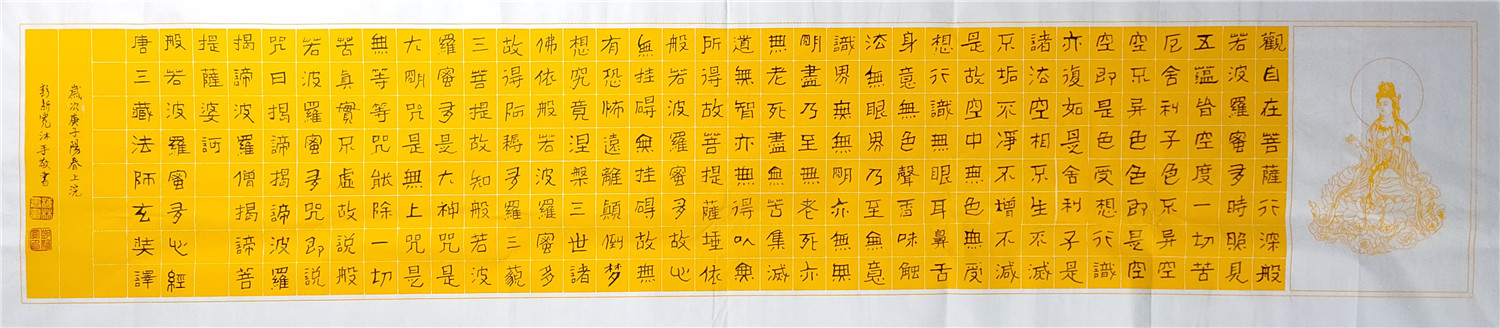 觀自在菩薩行深般
若波羅蜜多時照見
五蘊皆空度一切苦
厄舍利子色不異空
空不異色色即是空
空即是色受想行識
亦復如是舍利子是
諸法空相不生不滅
不垢不淨不增不減
是故空中無色無受
想行識無眼耳鼻舌
身意無色聲香味觸
法無眼界乃至無意
識界無無明亦無無
明盡乃至無老死亦
無老死盡無苦集滅
道無智亦無得以無
所得故菩提薩埵依
般若波羅蜜多故心
無挂礙無挂礙故無
有恐怖遠離顛倒夢
想究竟涅槃三世諸
佛依般若波羅蜜多
故得阿耨多羅三藐
三菩提故知般若波
羅蜜多是大神咒是
大明咒是無上咒是
無等等咒能除一切
苦真實不虛故說般
若波羅蜜多咒即說
咒曰揭諦揭諦波羅
揭諦波羅僧揭諦菩
提薩婆訶
般若波羅蜜多心經
唐三藏法師玄奘譯
歲次庚子陽春上浣
沐手敬書